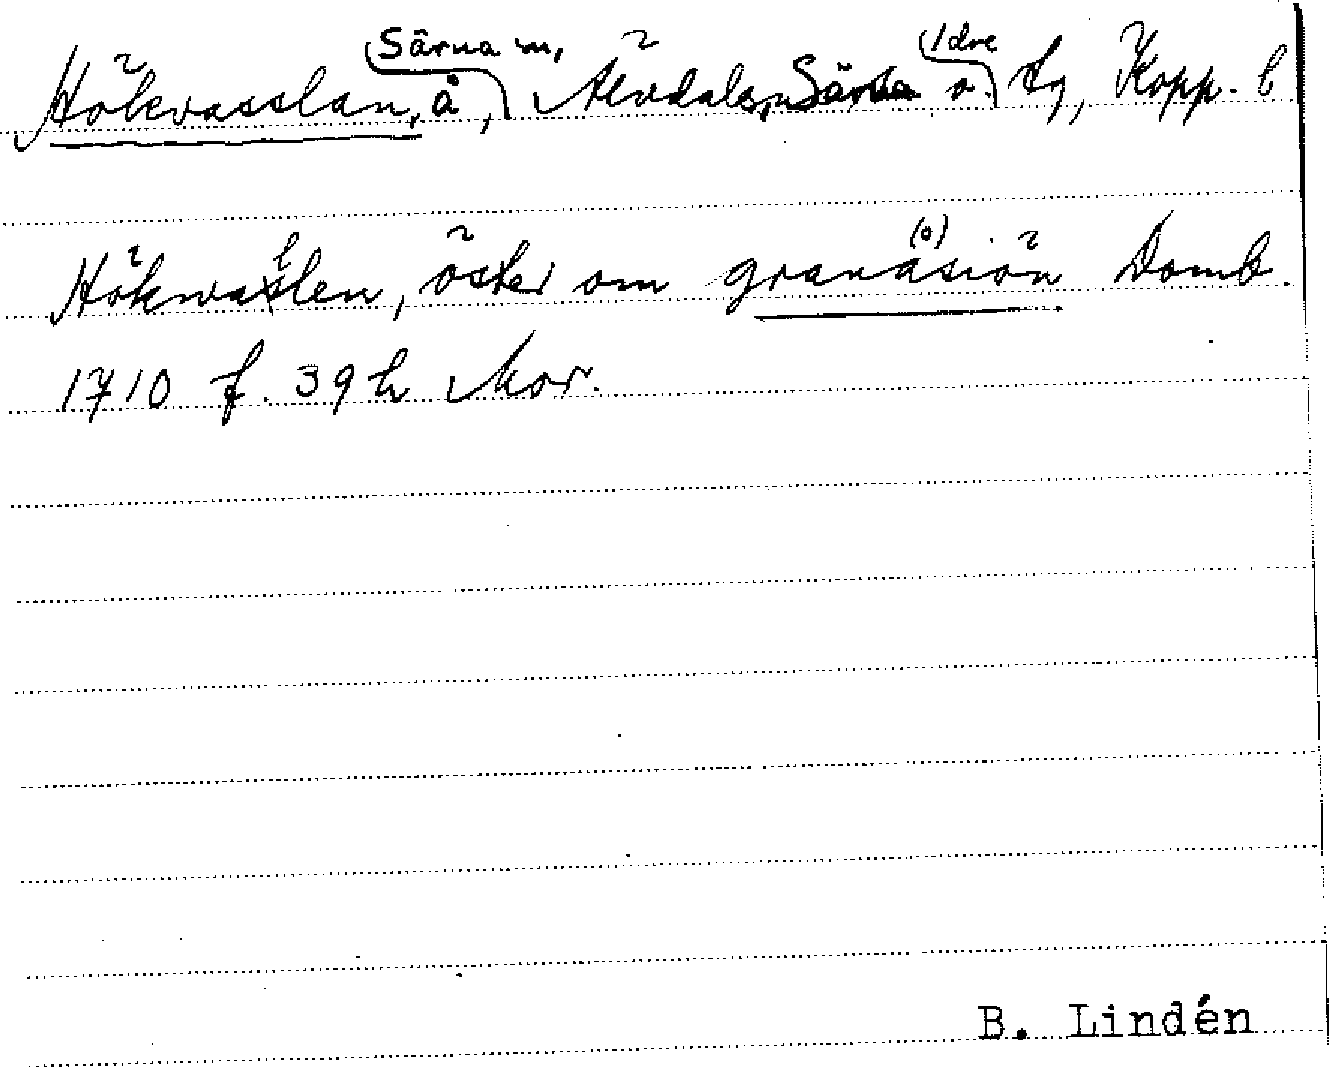 Hökvasslan, å, Särna m, Älvdals, Särna o. Idre tg, Kopp. l
Hökwaslen, öster om granåsiön Domb.
1710 f. 39 h Mor.
B. Lindén